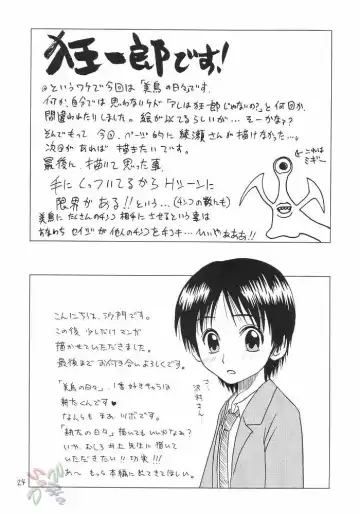 狂一郎です!
@というワケで今回は「美鳥の日々」です。
何か、自分では思わないケド「アレは狂一郎じゃないの?」と何回か、
間違われたりしました。絵が似てるらしいが… そーかなぁ?
そんでもって 今回、ページ的に綾瀬さんが描けなかった…。
次回があれば描きたいです。
最後に、描いて思った事、
手にくっついてるからHシーンに
限界がある!!という…
美鳥にたくさんの
相手にさせるという事は
すなわち セイジが他人の
いいやぁああ!!
これは
ミギー
こんにちは、沙門です。
この後 少しだけマンガ
描かせていただきました。
最後までお付き合いよろしくです。
「美鳥の日々」、1番好きキャラは
耕太くんです♥
なんともまぁ ツボです。
「耕太の日々」描いてもいいかなぁ?
いや、むしろ井上先生に描いて
いただきたい!!切実!!
あ〜 もっと本編に出てきてほしい。
沢村さん
24